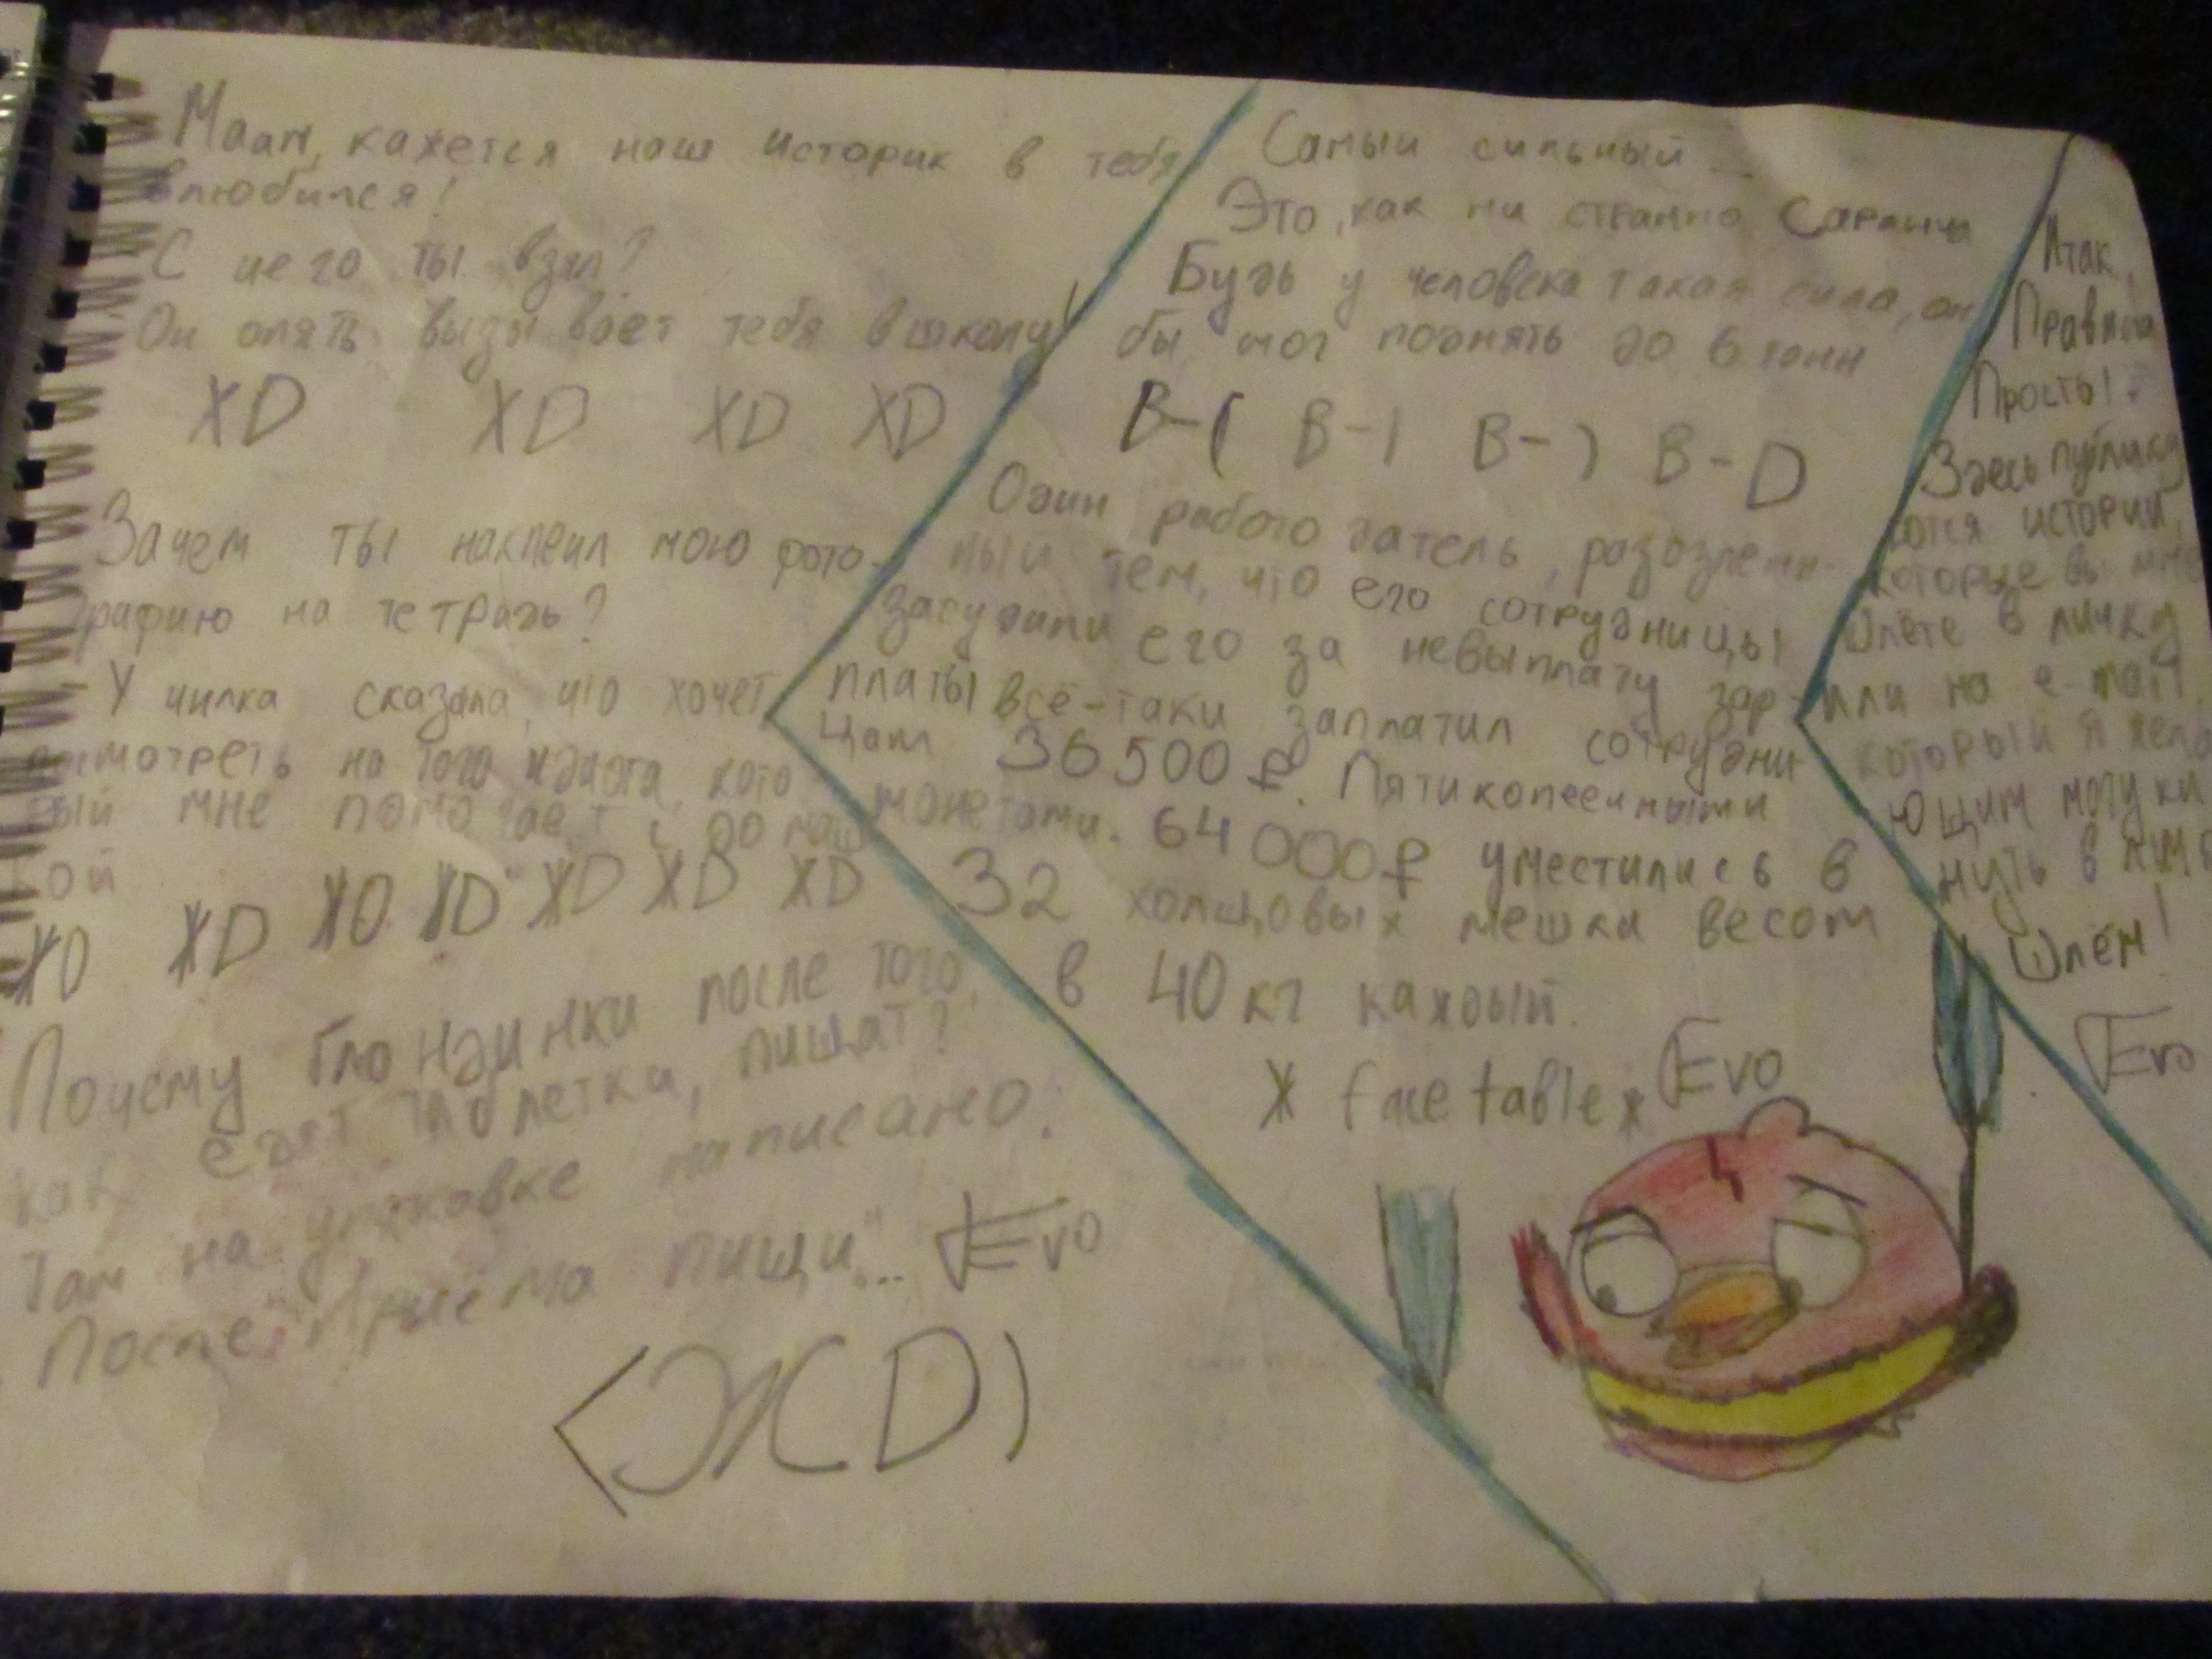 Маам, кажется наш историк в тебя
влюбился!
С чего ты взял?
Он опять вызывает тебя в школу!
XD XD XD XD
Зачем ты наклеил мою фото-
графию на тетрадь?
- Училка сказала, что хочет
посмотреть на того идиота, кото
рый мне помогает с домаш
кой
XD XD XD XD XD XD XD
Почему блондинки после того,
как едят таблетки, пищат?
Там на упаковке написано:
После "Приёма пищи"... Evo
(ЖD)
Самый сильный...
Это, как ни странно Саранча
Будь у человека такая сила, он
бы мог поднять до 6 тонн
B-( B-| B-) B-D
Один работодатель, разозлённ-
ный тем, что его сотрудницы
засудили его за невыплату зар-
платы всё-таки заплатил сотрудни
цам 36500 ₽. Пятикопеечными
монетами. 64000₽ уместились в
32 холщовых мешка весом
в 40 кг каждый.
x face table x Evo
Итак,
Правила
Просты!
Здесь публику
ются истории,
которые вы мне
шлёте в личку
или на e-mail
который я жела
ющим могу ки
нуть в лич
Шлём!
Evo